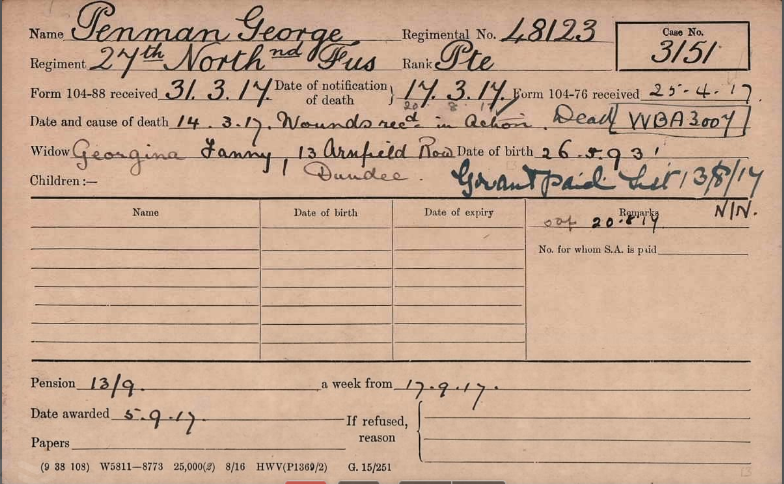 Name Penman George Regimental No. 48123 Case No. 3151
Regiment 27th North nd Fus Rank Pte
Form 104-88 received 31.3.17. Date of notification of death } 17.3.17. Form 104-76 received 25-4.17.
20 8 17
Date and cause of death 14.3.17. Wounds recd. in action. Dead WBA3007
Widow Georgina Fanny, 13 Arnfield Row Date of birth 26.5.93
Children:— Dundee. Grant paid List 13/8/17
N/N.
Name Date of birth Date of expiry Remarks
20.8.17
No. for whom S.A. is paid
Pension 13/9. a week from 17.9.17.
Date awarded 5.9.17. If refused, reason
Papers
(9 38 108) W5811—8773 25,000(2) 8/16 HWV(P1369/2) G. 15/251